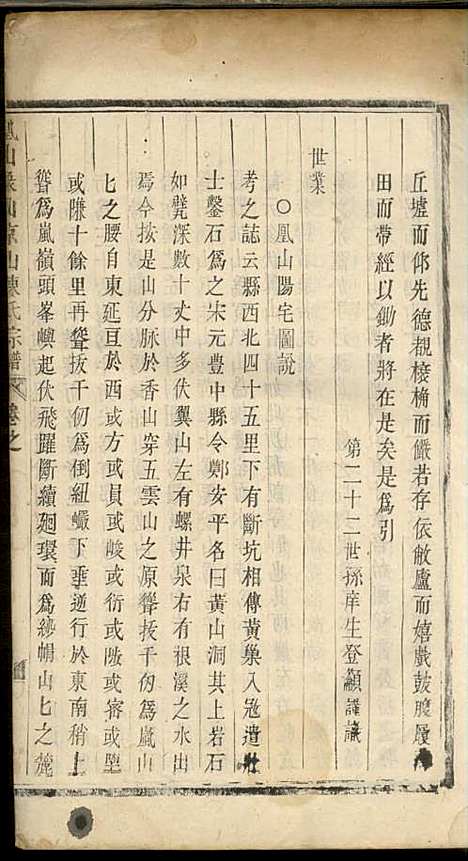 丘墟而仰先德覩桵桷而儼若存依敝廬而嬉戲鼓腹履
田而帶經以鋤者將在是矣是為引
第二十二世孫庠生登顯謹識
世業
○凰山陽宅圖說
考之誌云縣西北四十五里下有斷坑相傳黃巢入冦遣壯
士鑿石為之宋元豐中縣令鄭安平名曰黃山洞其上岩石
如甓深數十丈中多伏翼山左有螺井泉右有根溪之水出
焉今按是山分脉於香山穿五雲山之原聳拔千仞為嵐山
匕之腰自東延亘於西或方或員或峻或衍或隘或窨或墨
或陡十餘里再聳拔千仞為倒紐巘下垂逆行於東南稍上
聳為嵐嶺頭峯嶼起伏飛躍斷續廻環而為紗帽山匕之麓
山泉山陳氏宗譜
卷之